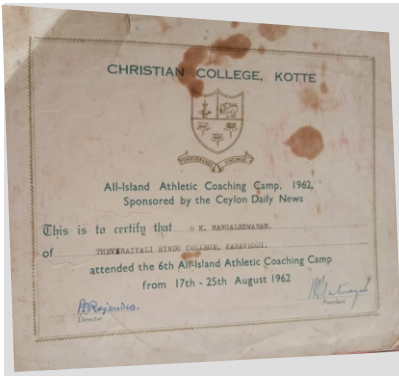 CHRISTIAN COLLEGE, KOTTE
All-Island Athletic Coaching Camp, 1962,
Sponsored by the Ceylon Daily News
This is to certify that K. MANGALESWARAN.
of THEVARAIYALI HINDU COLLEGE, KARAVEDDI.
attended the 6th All-Island Athletic Coaching Camp
from 17th - 25th August 1962
Director
President